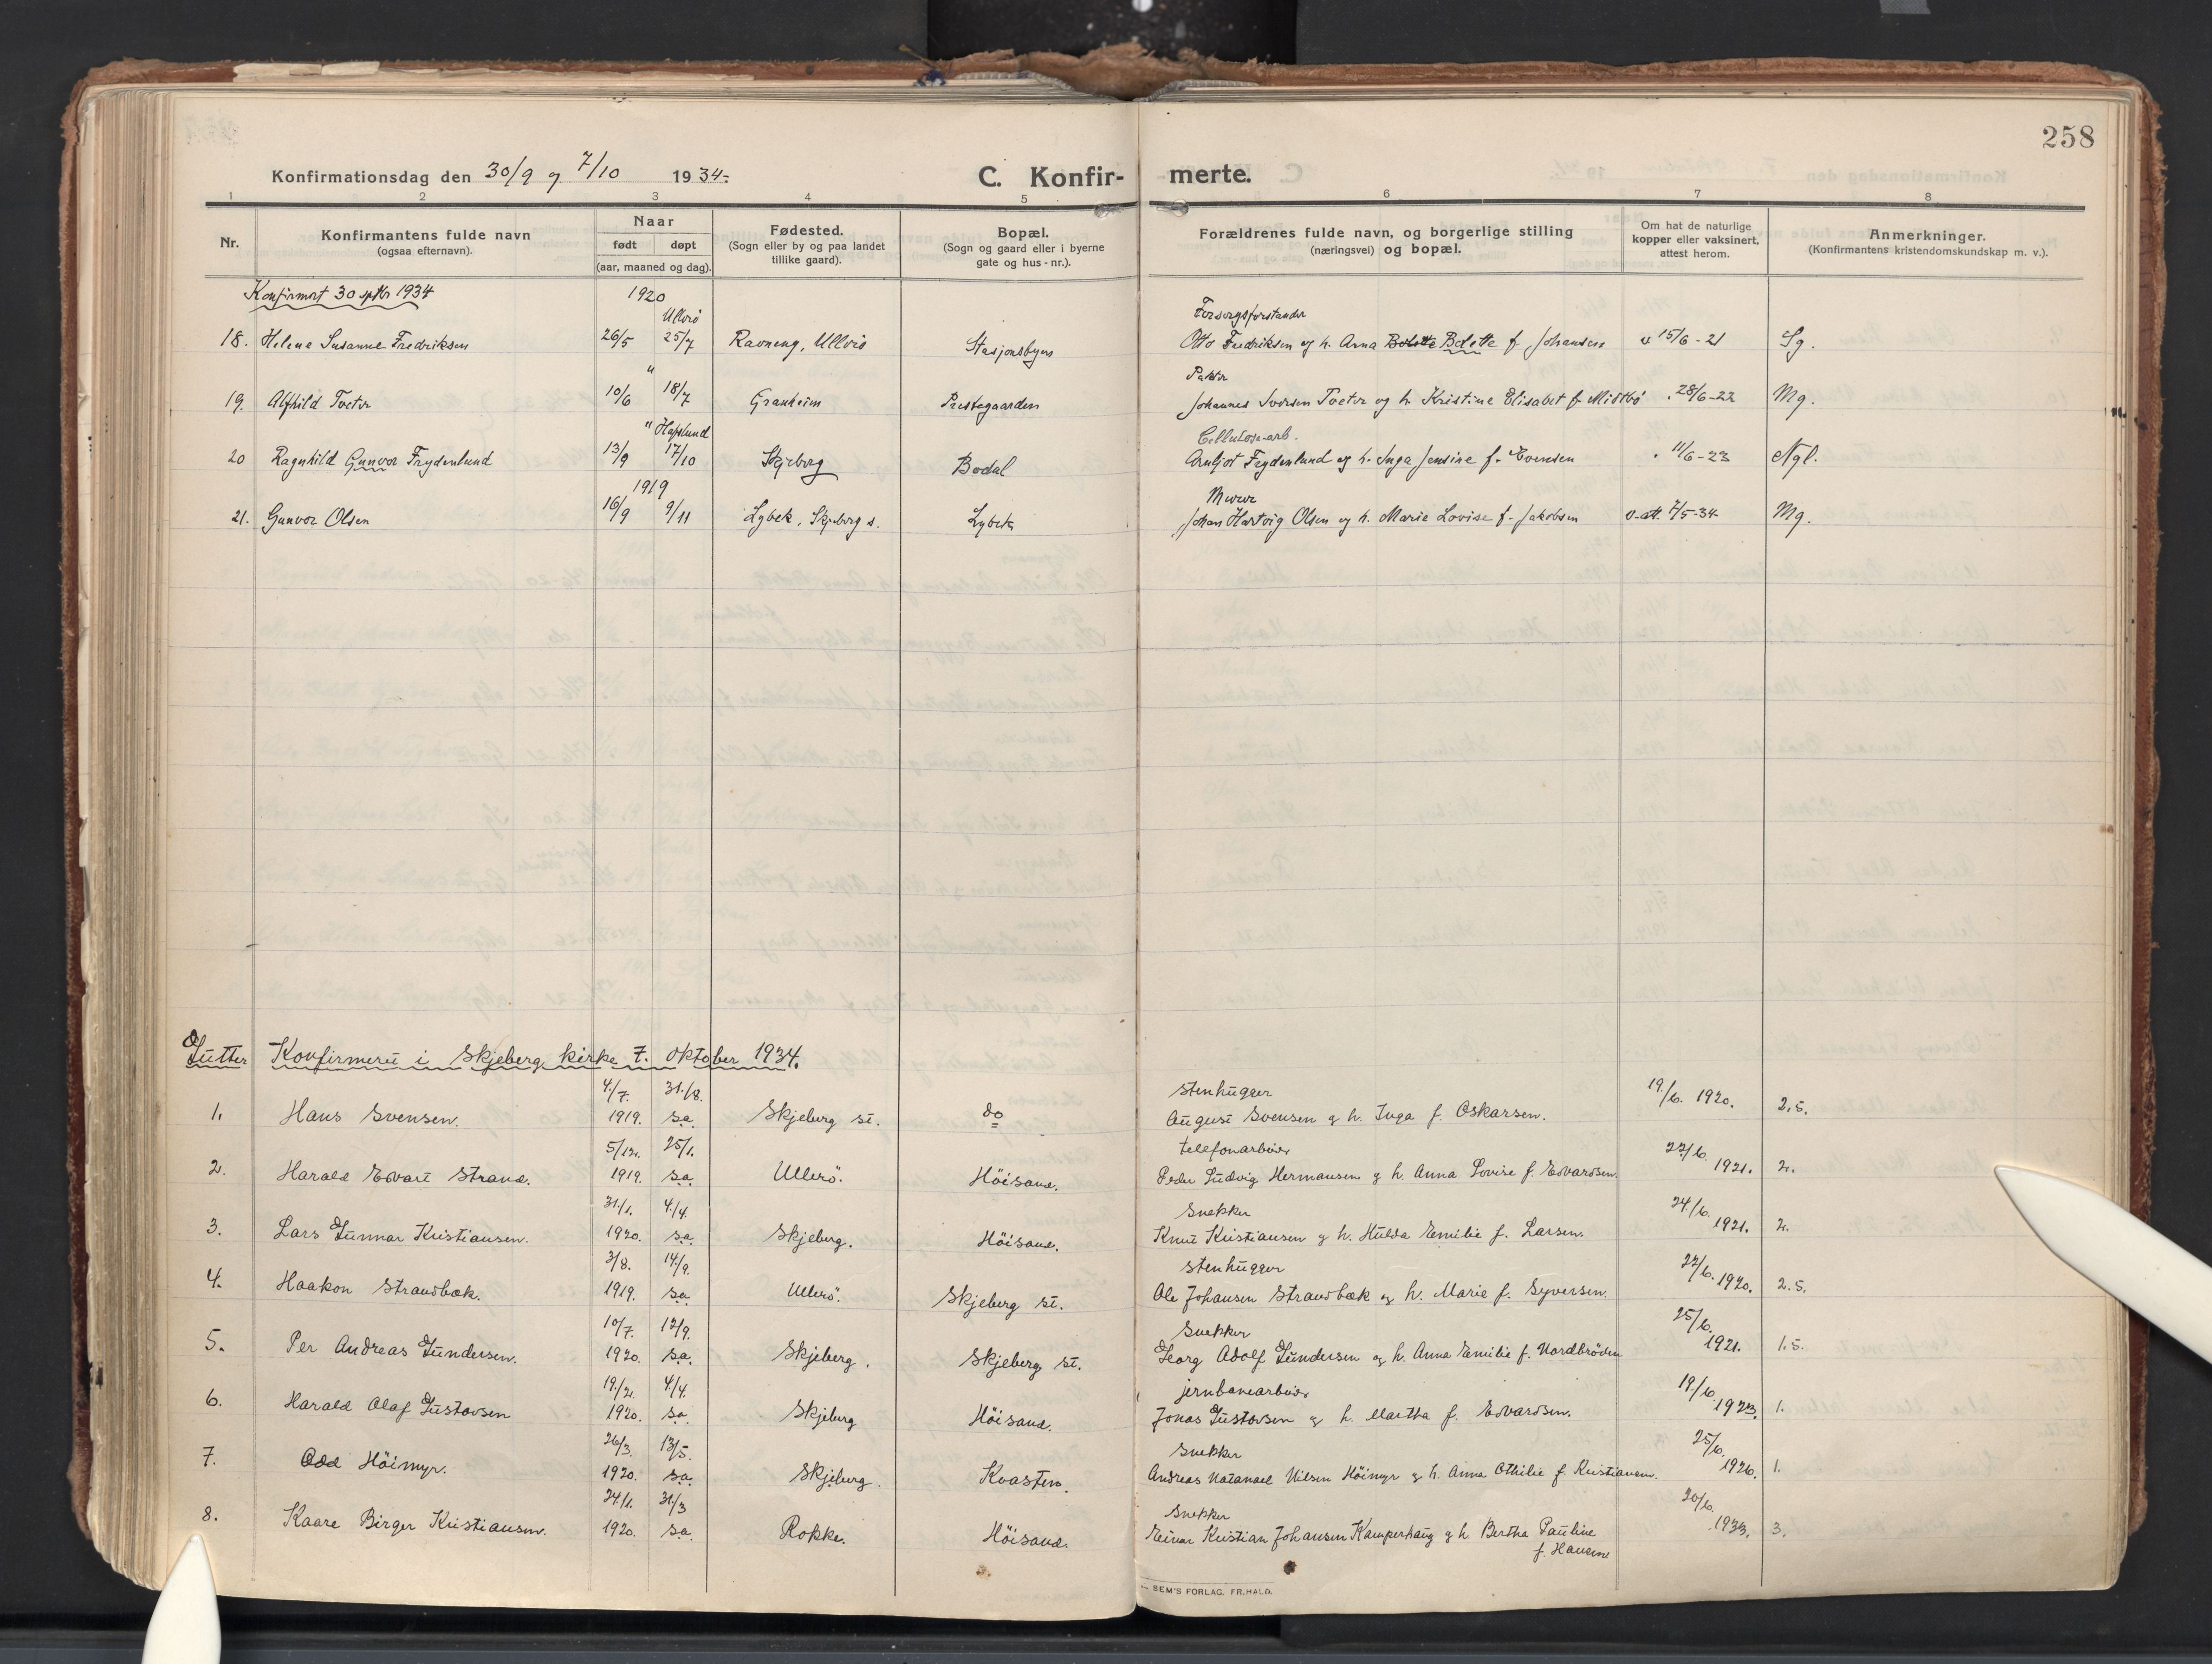 258
Konfirmationsdag den 30/9 og 7/10 1934.
C. Konfir- merte.
1 2 3 4 5 6 7 8
Nr.
Konfirmantens fulde navn
(ogsaa efternavn).
Naar
født døpt
(aar, maaned og dag).
Fødested.
(Sogn eller by og paa landet
tillike gaard).
Bopæl.
(Sogn og gaard eller i byerne
gate og hus-nr.).
Forældrenes fulde navn, og borgerlige stilling
(næringsvei) og bopæl.
Om hat de naturlige
kopper eller vaksinert,
attest herom.
Anmerkninger.
(Konfirmantens kristendomskundskap m. v.).
Konfirmert 30 septbr 1934 1920
Ullerö Forsorgsforstander
18. Helene Susanne Fredriksen 26/5 25/7 Ravneng, Ullerö Stasjonsbyen Otto Fredriksen og h. Anna Bolette f. Johansen v 15/6-21 Sg.
" Pakter
19. Alfhild Tveter 10/6 18/7 Granheim Prestegaarden Johannes Iversen Tveter og h. Kristine Elisabet f. Midtbö 28/6-22 Mg.
" Hafslund Cellulose-arb.
20 Ragnhild Gunvor Frydenlund 13/9 17/10 Skjeberg Bodal Arnljot Frydenlund og h. Inga Jensine f. Evensen 11/6-23 Ngl.
1919 Murer
21. Gunvor Olsen 16/9 9/11 Lybek, Skjeberg s. Lybek Johan Hartvig Olsen og h. Marie Lovise f. Jakobsen v. att. 7/5-34 Mg.
Gutter Konfirmert i Skjeberg kirke 7. oktober 1934.
4/7. 31/8. stenhugger 19/6. 1920.
1. Hans Svensen. 1919. s.a. Skjeberg st. do August Svensen og h. Inga f. Oskarsen. 2.5.
5/12. 25/1. telefonarbeider 22/6. 1921.
2. Harald Edvart Strand. 1919. s.a. Ullerö. Höisand. Peder Ludvig Hermansen og h. Anna Lovise f. Edvardsen. 2.
31/1. 4/4. snekker 24/6. 1921.
3. Lars Gunnar Kristiansen. 1920. s.a. Skjeberg. Höisand. Knut Kristiansen og h. Hulda Emilie f. Larsen. 2.
3/8. 14/9. stenhugger 22/6. 1920.
4. Haakon Strandbæk. 1919. s.a. Ullerö. Skjeberg st. Ole Johansen Strandbæk og h. Marie f. Syversen. 2.5.
10/7. 12/9. snekker 25/6. 1921.
5. Per Andreas Gundersen. 1920. s.a. Skjeberg. Skjeberg st. Georg Adolf Gundersen og h. Anna Emilie f. Nordbröden 1.5.
19/2. 4/4. jernbanearbeider 19/6 1923.
6. Harald Olaf Gustavsen 1920. s.a. Skjeberg Höisand. Jonas Gustavsen og h. Martha f. Edvardsen. 1.
26/3. 13/5. snekker 25/6. 1926.
7. Odd Höimyr. 1920. s.a. Skjeberg. Kvasten. Andreas Natanael Nilsen Höimyr og h. Anna Othilie f. Kristiansen. 1.
24/1. 31/3 snekker 20/6. 1933.
8. Kaare Birger Kristiansen. 1920. s.a. Rokke. Höisand. Einar Kristian Johansen Kamperhaug og h. Bertha Pauline 3.
f. Hansen
SEM'S FORLAG. FR.HALD.